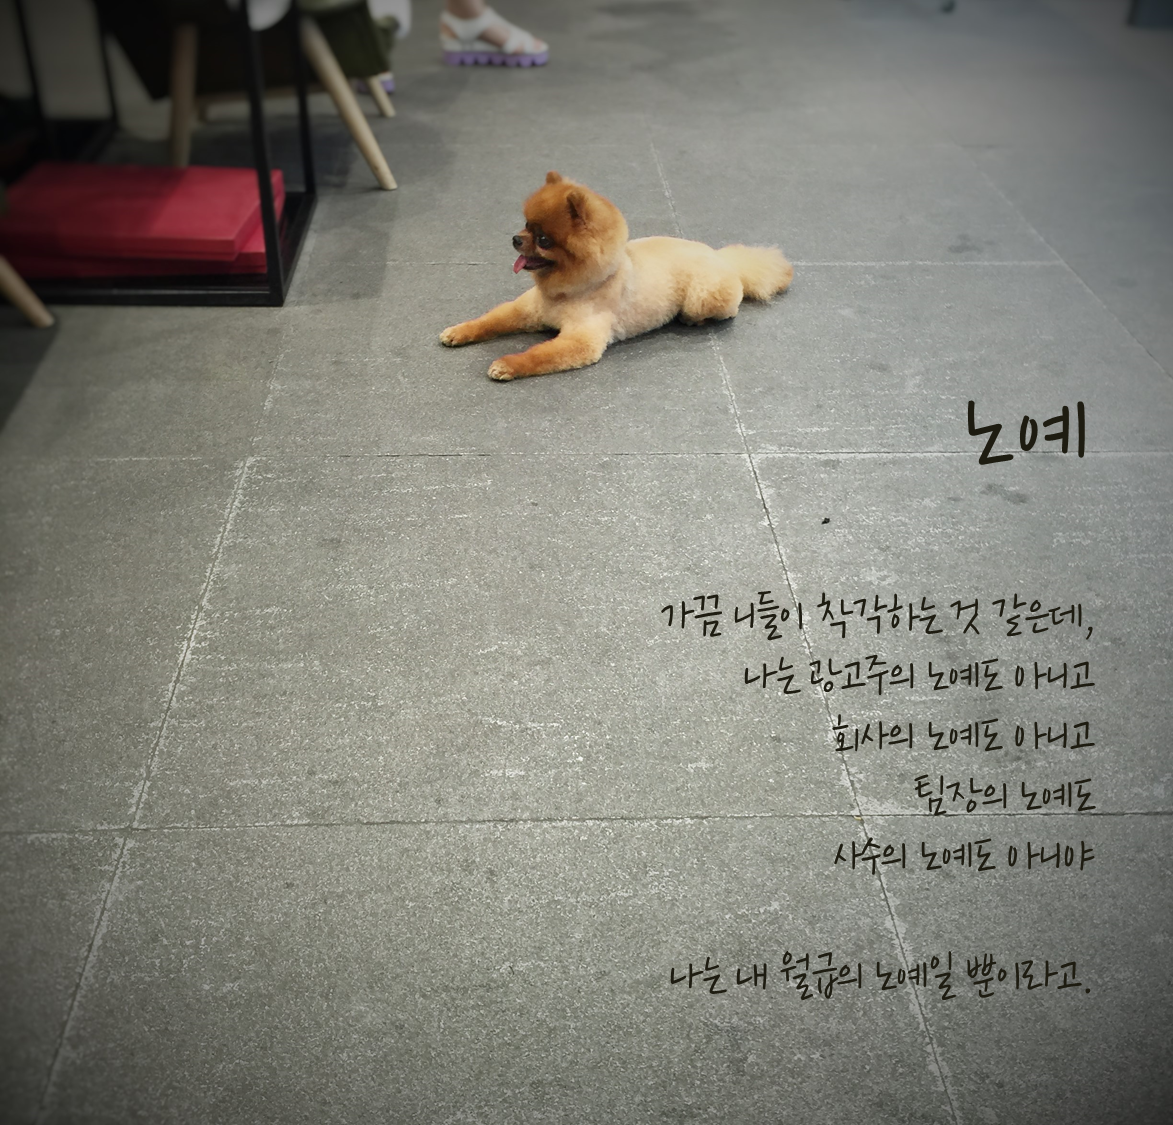 노예
가끔 니들이 착각하는 것 같은데,
나는 광고주의 노예도 아니고
회사의 노예도 아니고
팀장의 노예도
사수의 노예도 아니야
나는 내 월급의 노예일 뿐이라고.